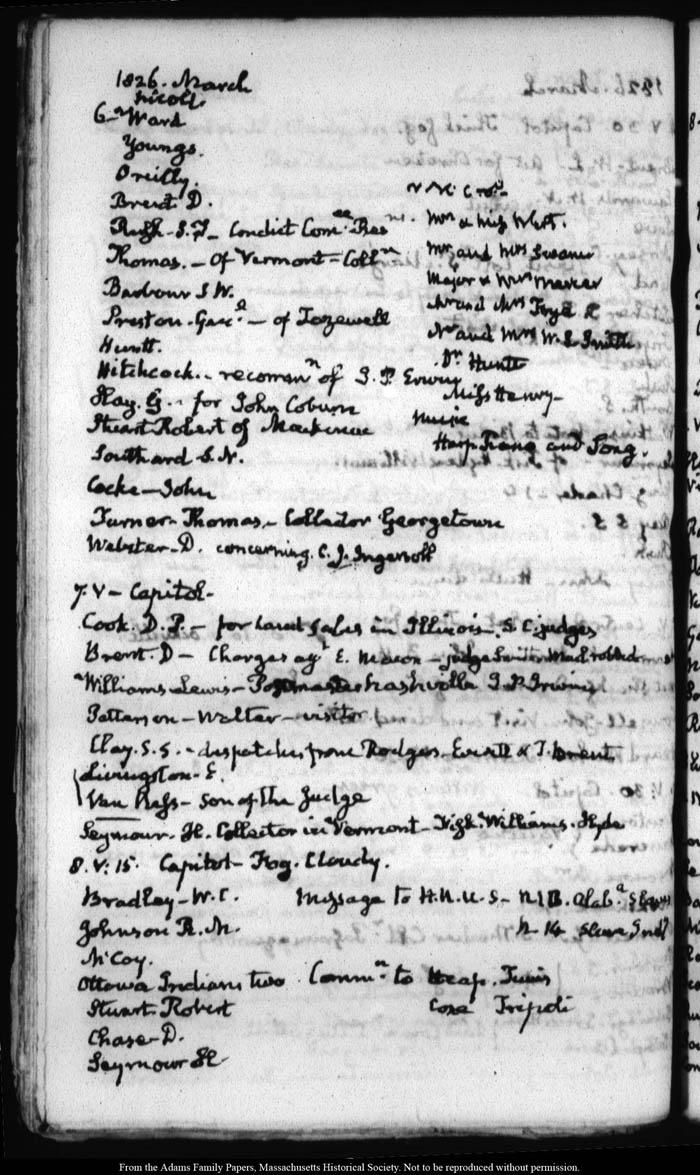 1826. March
Nicoll.
6. Ward
Youngs.
Oreilly.
Brent D.
Rush - S. F. - Condict Com.ee Res
Thomas. - Of Vermont - Coll.n
Barbour J W.
Preston. Gen.l - of Tazewell
Huntt.
Hitchcock. - recomm.n of
Clay. G. - for John Coburn
Stuart Robert of Mackinac
Southard S. L.
Cocke - John
Turner - Thomas. - Collector Georgetown
Webster - D. concerning C. J. Ingersoll
Mr & Miss Whitt.
Mr and Mrs
Major & Mrs Mercer
Mr and Mrs Frye R
Mr and Mrs W. S. Smith
Dr Huntt
Miss Henry -
Music
Harp Piano and Song.
7. V - Capitol -
Cook. D. P. - for Land Sales in Illinois. S. C. judges
Brent. D - Charges ag.t E. Macon - judge
Williams Lewis - Postmaster Nashville
Patterson - Walter - visitor
Clay. - dispatches from Rodgers, Everett & T. Brent
Livingston - E.
Van Ness - son of the Judge
Seymour. H. Collector in Vermont - Williams. Hyde
8. V: 15. Capitol - Fog. Cloudy.
Bradley - W. C. Message to H. R. U. S -
Johnson R. M.
McCoy.
Ottawa Indians two Comm.n to Heap. Tunis
Stuart Robert Coxe Tripoli
Chase - D.
Seymour H
From the Adams Family Papers, Massachusetts Historical Society. Not to be reproduced without permission.